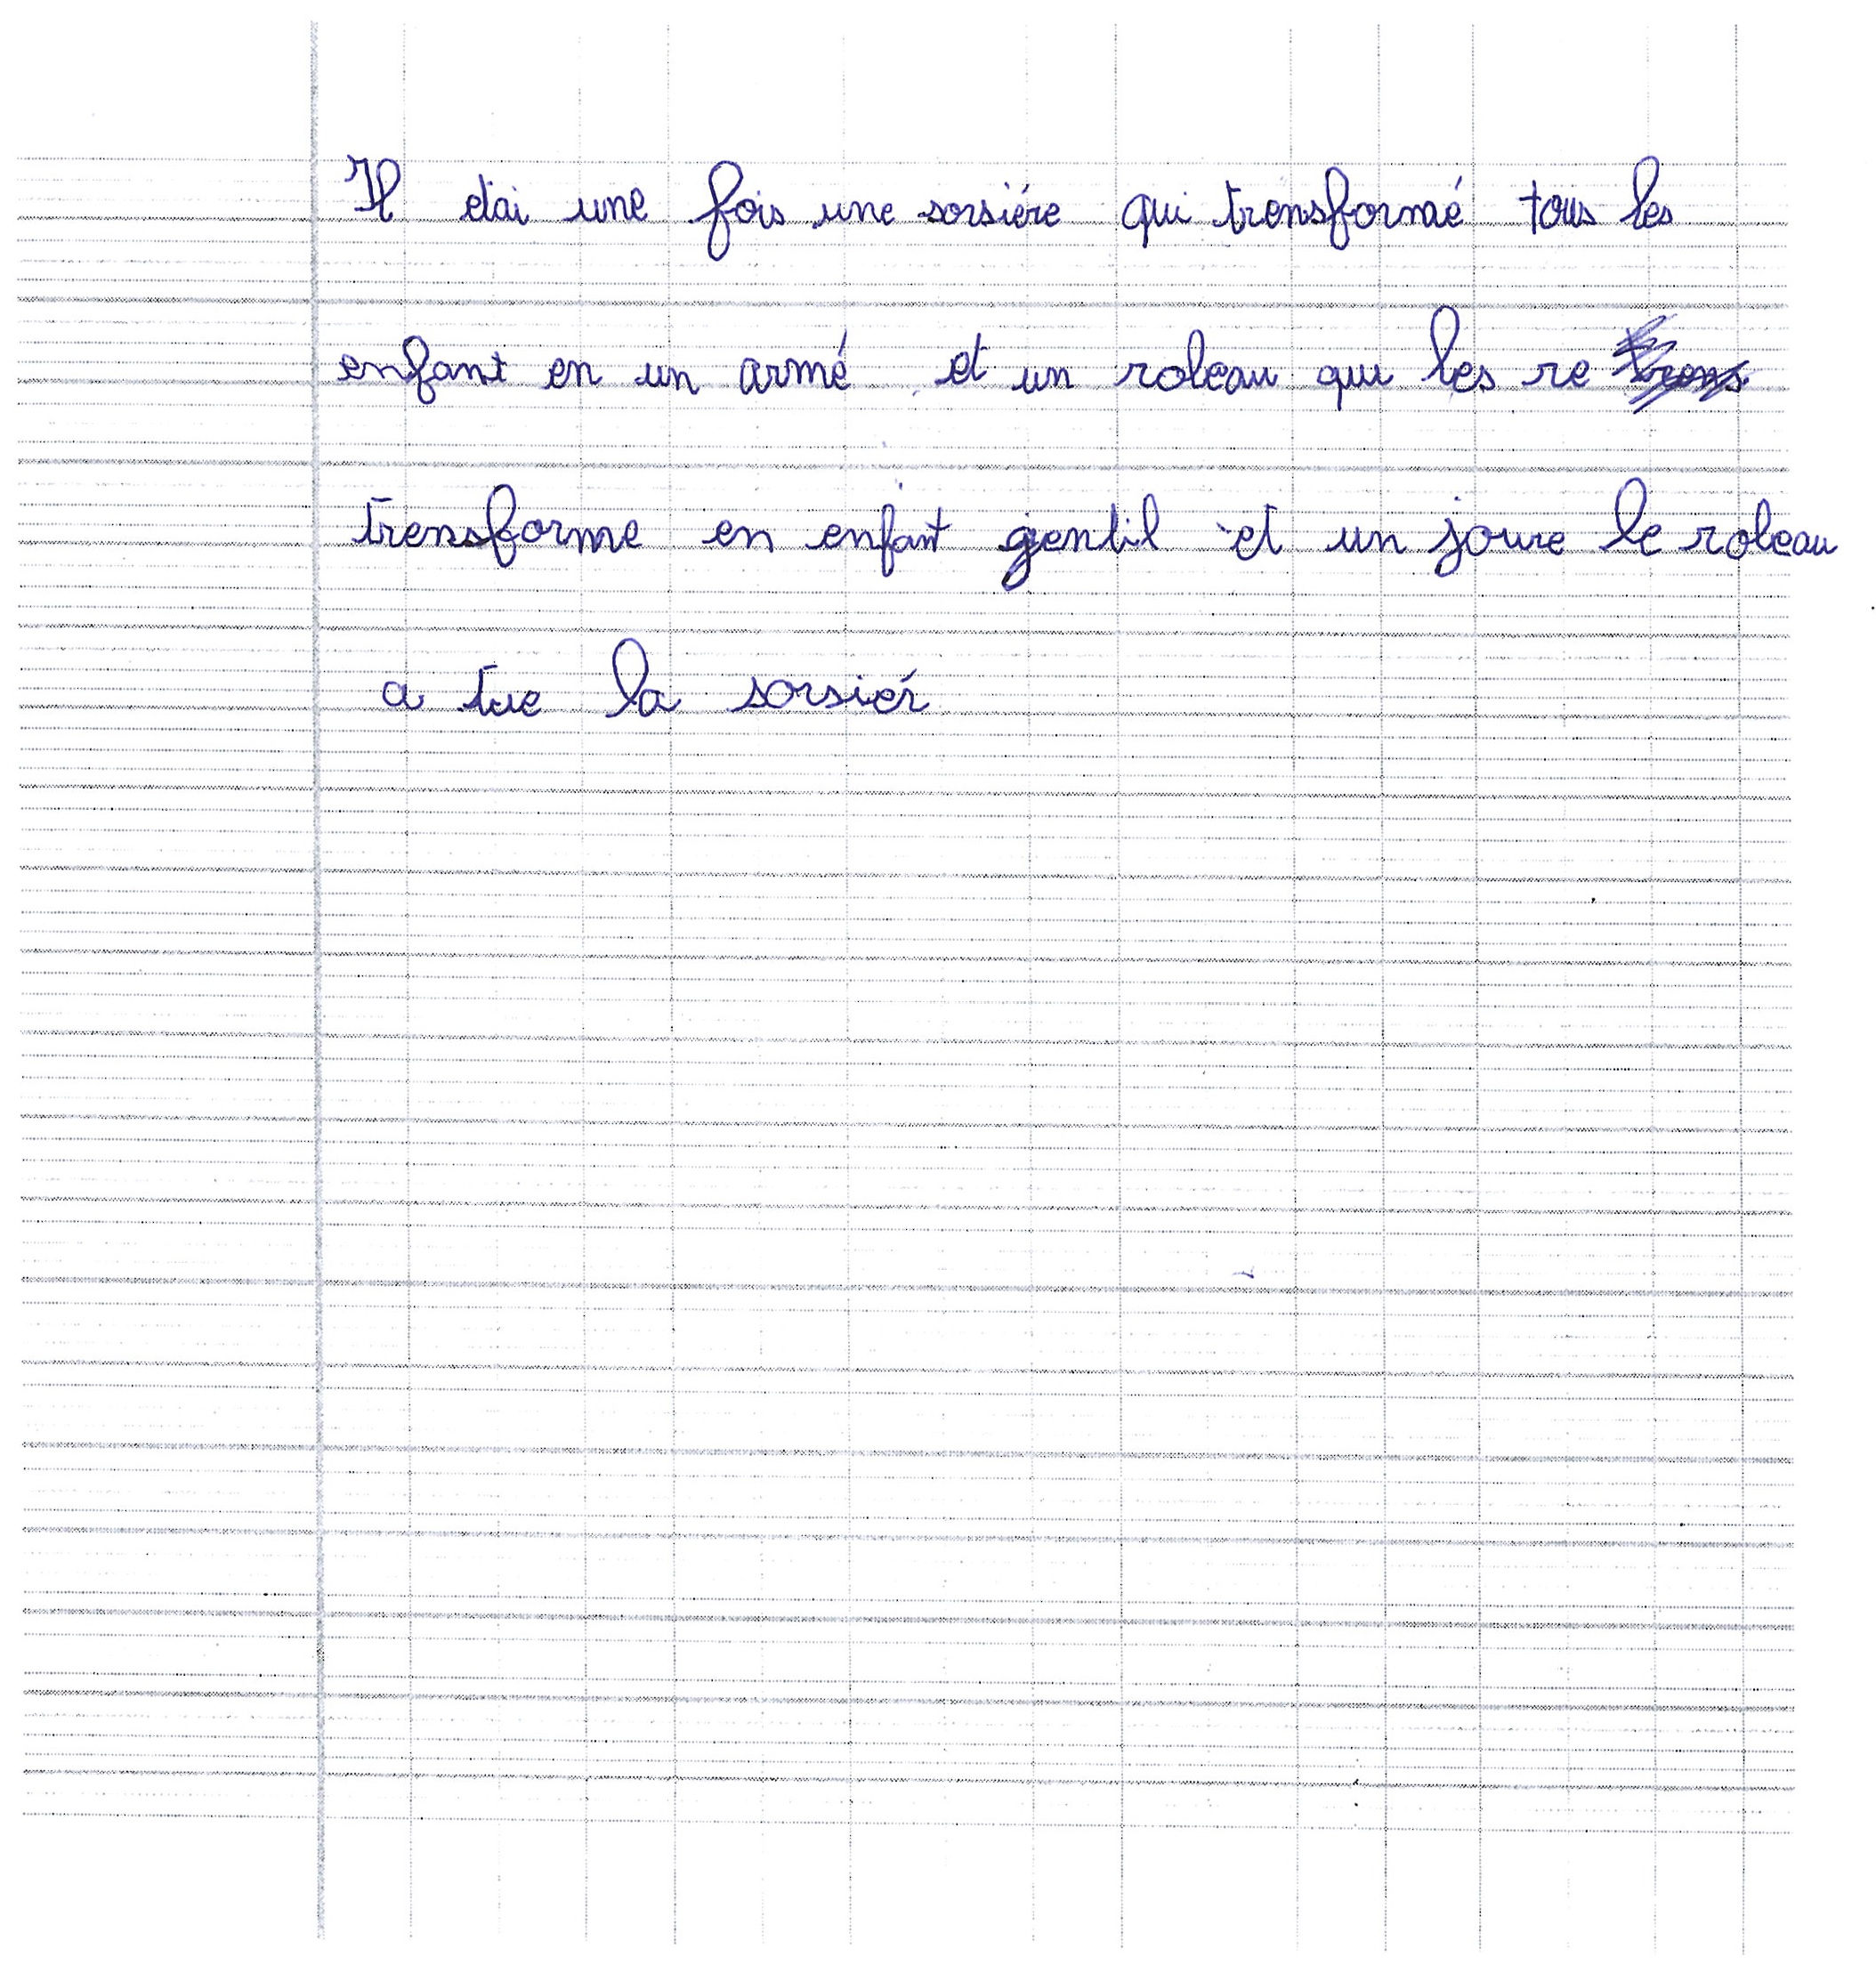 Il etai une fois une sorsière qui trensformé tous les
enfant en un armé et un roleau qui les re
trensforme en enfant gentil et un joure le roleau
a tue la sorsiér